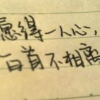 愿得一人心，
白首不相离